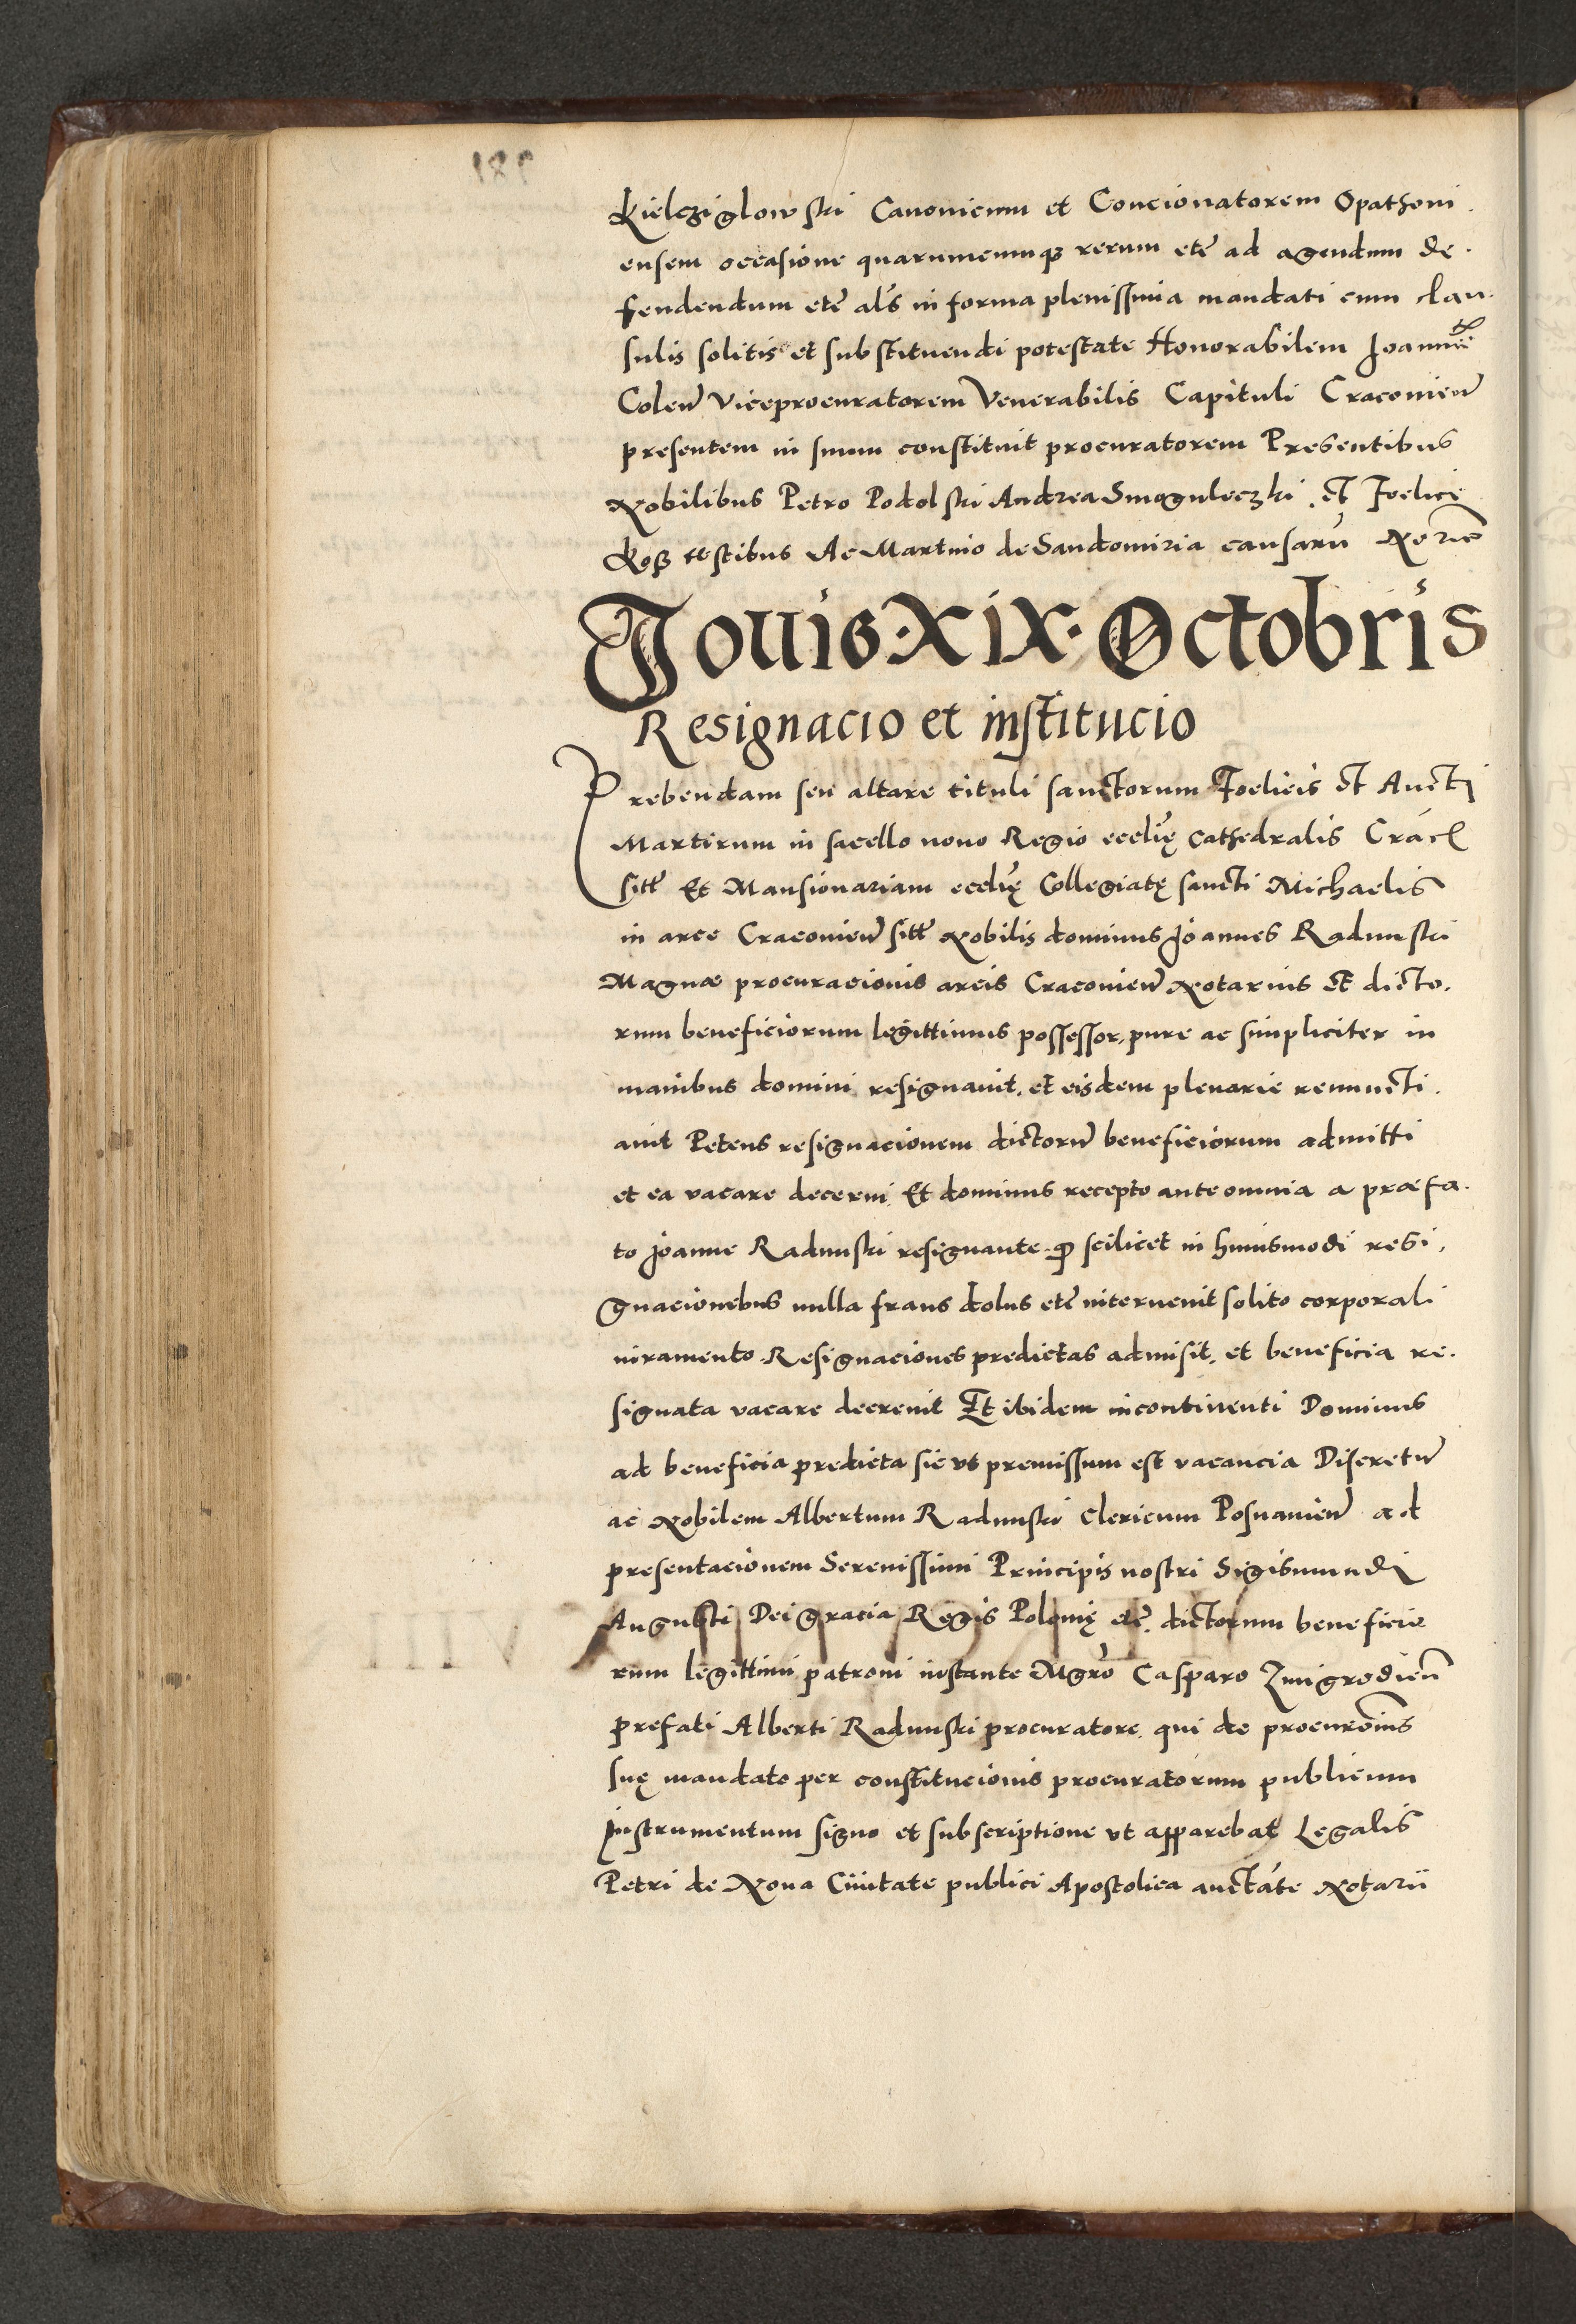 Kielcziglowski Canonicum et Concionatorem Opathoni.
ensem occasione quarumcumq rerum etc̃ ad agendum de.
fendendum etc̃ als in forma plenissima mandati cum clau.
sulis solitis et substituendi potestate Honorabilem Joannẽ
Colen̄ Viceprocuratorem Venerabilis Capituli Cracovien̄
presentem in suum constituit procuratorem Presentibus
Nobilibus Petro Podolski Andrea Smoguleczki. et Foelice
Koß testibus Ac Martino de Sandomiria causarū Norio
Jouis·XIX·Octobris
Resignacio et institucio
Prebendam seu altare tituli sanctorum Foelicis et Aucti
Martirum in sacello nouo Regio ecclię Cathedralis Crac
sitt̃ Et Mansionariam ecclię Collegiatę sancti Michaelis
in arce Cracovien̄ sitt̃ Nobilis dominus Joannes Radunski
Magnæ procuracionis arcis Cracovien̄ Notarius et dicto.
rum beneficiorum legittimus possessor, pure ac simpliciter in
manibus domini resignauit. et eisdem plenarie renuncti.
auit Petens resignacionem dictorū beneficiorum admitti
et ea vacare decerni. Et dominus recepto ante omnia a præfa.
to Joanne Radunski resignante. ꝙ scilicet in huiusmodi resi,
gnacionibus nulla fraus dolus etc̃ interuenit solito corporali
iuramento. Resignaciones predictas admisit, et beneficia re.
signata vacare decreuit Et ibidem incontinenti Dominus
ad beneficia predicta sic vt premissum est vacancia Discretū
ac Nobilem Albertum Radunski Clericum Posnanien̄ ad
presentacionem Serenissimi Principis nostri Sigismundi
Augusti Dei gracia Regis Polonię etc̃. dictorum beneficio
rum legittimi patroni instante Mgro Casparo Zmigrodien̄
prefati Alberti Radunski procuratore. qui de procurõnis
suę mandato per constitucionis procuratorum publicum
instrumentum signo et subscriptione vt apparebat Legalis
Petri de Noua Ciuitate publici Apostolica auctáte Notarii